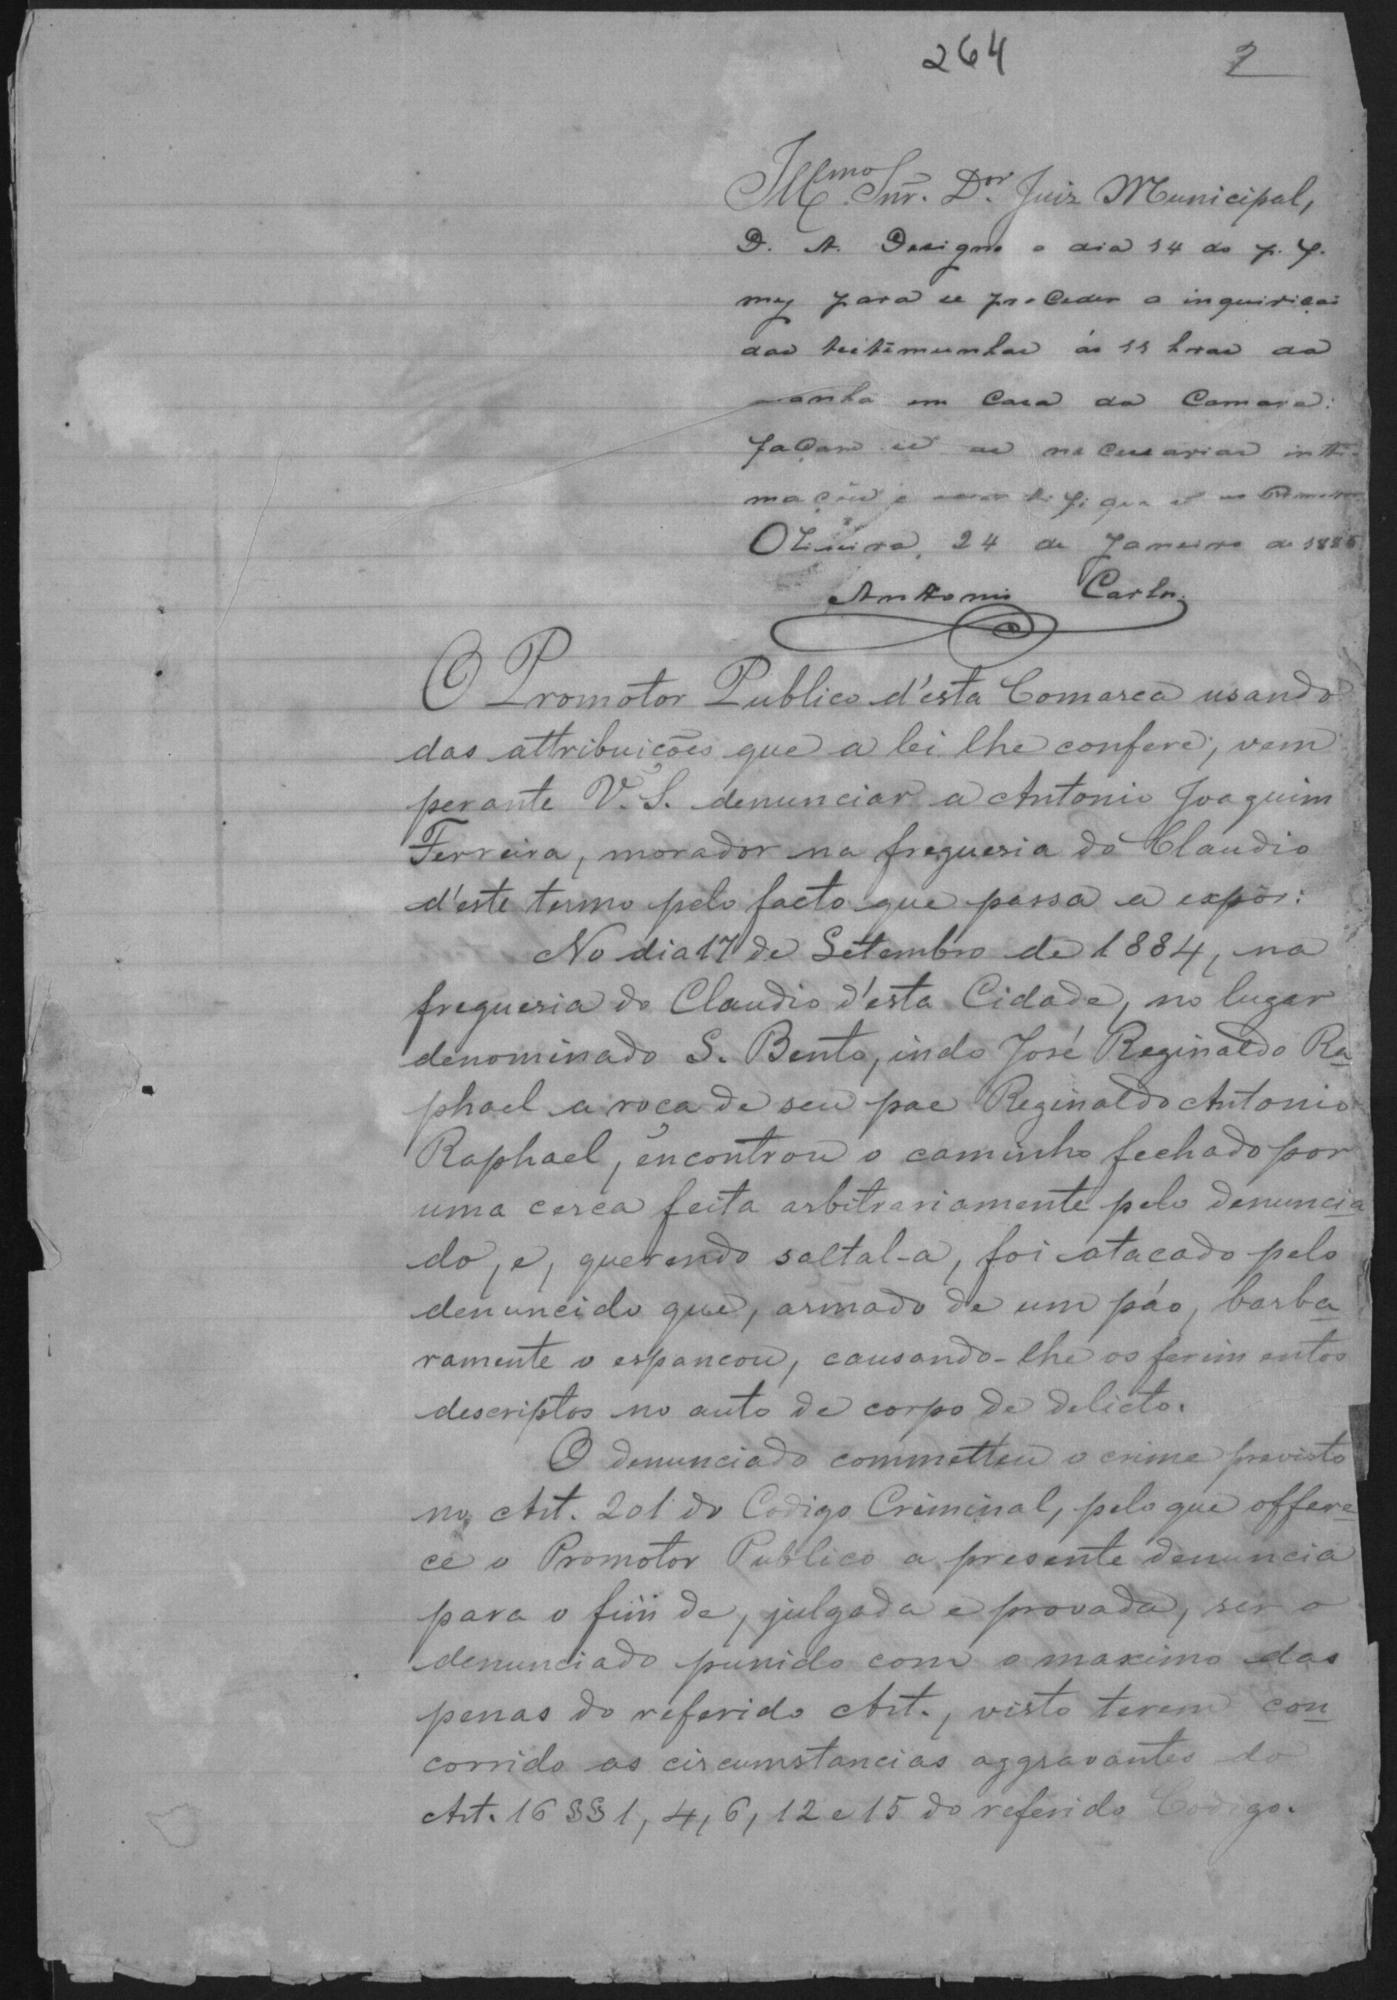 264 2
Illmo. Snr. Dor. Juiz Municipal,
D. A. Designo o dia 14 do p. p.
mez para se proceder a inquirição
das testemunhas ás 11 horas da
manhã em Casa da Camara:
façam se as necessarias inti-
mações e
Oliveira, 24 de Janeiro de 1885
Antonio Carlos.
O Promotor Publico d'esta Comarca usando
das attribuições que a lei lhe confere, vem
perante V. S. denunciar a Antonio Joaquim
Ferreira, morador na freguesia do Claudio
d'este termo pelo facto que passa a expôr:
No dia 17 de Setembro de 1884, na
freguesia do Claudio d'esta Cidade, no lugar
denominado S. Bento, indo José Reginaldo Ra-
phael a roça de seu pae Reginaldo Antonio
Raphael, encontrou o caminho fechado por
uma cerca feita arbitrariamente pelo denuncia
do, e, querendo saltal-a, foi atacado pelo
denuncido que, armado de um páo, barba-
ramente o espancou, causando-lhe os ferimentos
descriptos no auto de corpo de delicto.
O denunciado commetteu o crime previsto
no Art. 201 do Codigo Criminal, pelo que offere-
ce o Promotor Publico a presente denuncia
para o fim de, julgada e provada, ser o
denunciado punido com o maximo das
penas do referido Art., visto terem con-
corrido as circumstancias aggravantes do
Art. 16 §§ 1, 4, 6, 12 e 15 do referido Codigo.